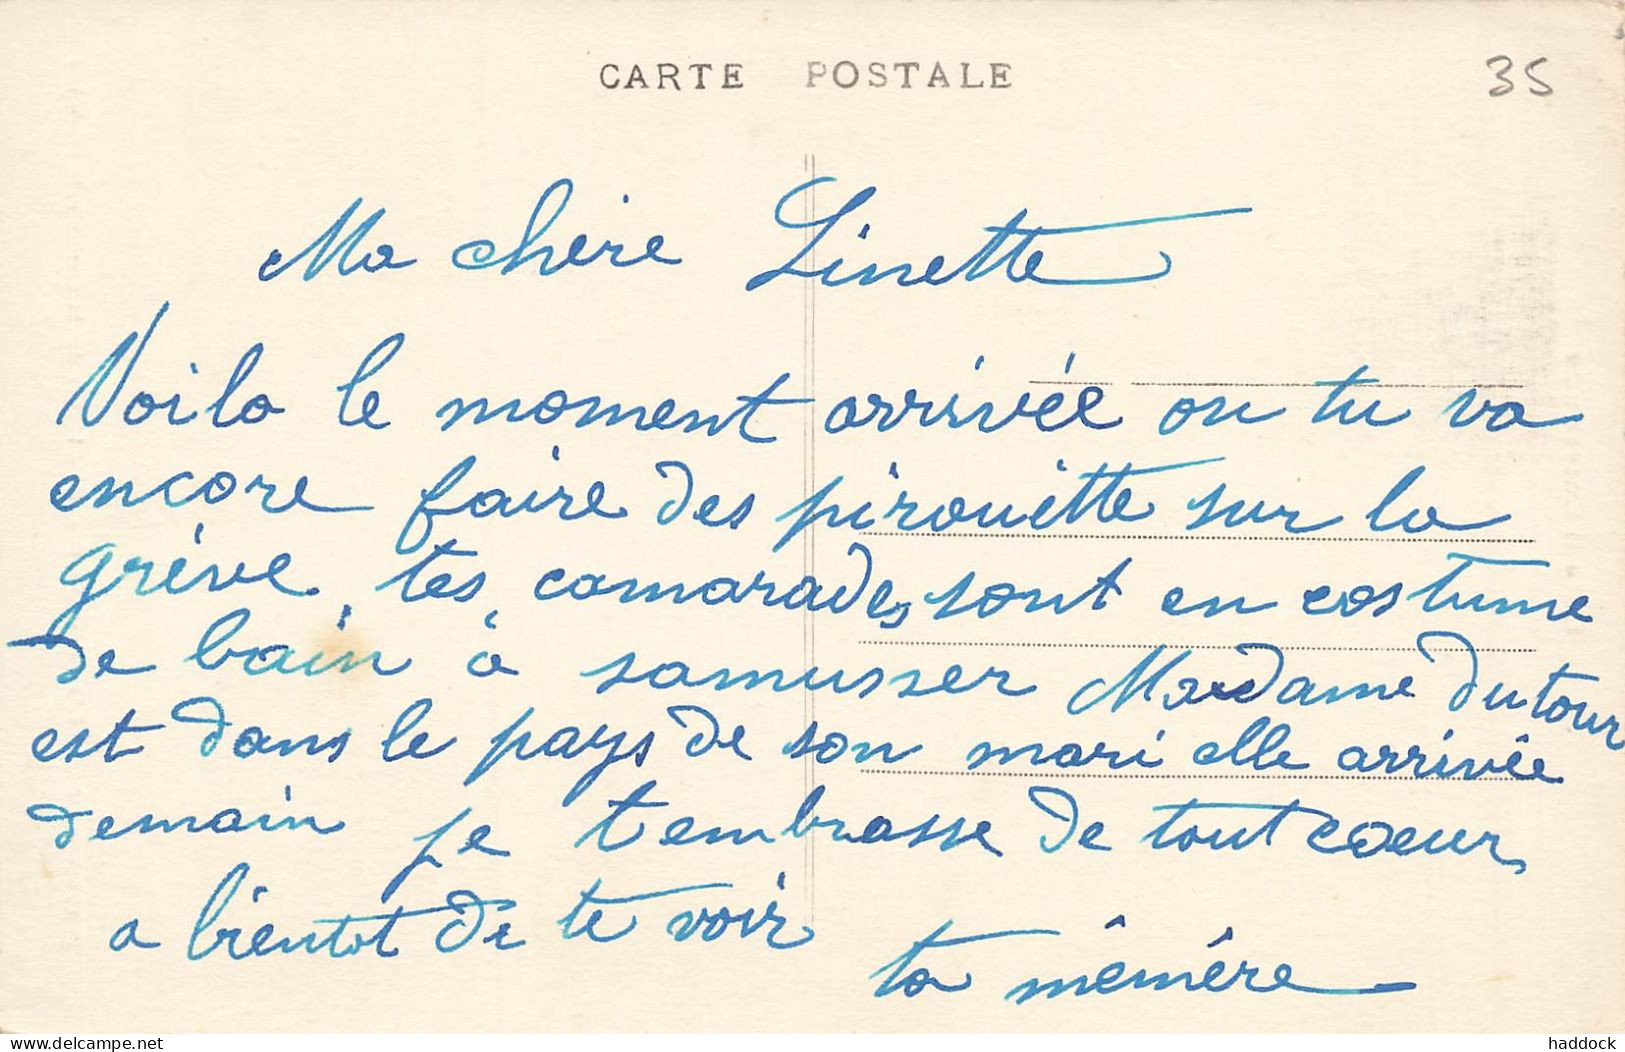 CARTE POSTALE
35
Ma chère Linette
Voila le moment arrivée ou tu va
encore faire des pirouette sur la
grève tes camarades sont en costume
de bain à samusser Madame Dutour
est dans le pays de son mari elle arrivée
demain je tembrasse de tout coeur
a bientot de te voir
ta mêmêre
www.delcampe.net
haddock